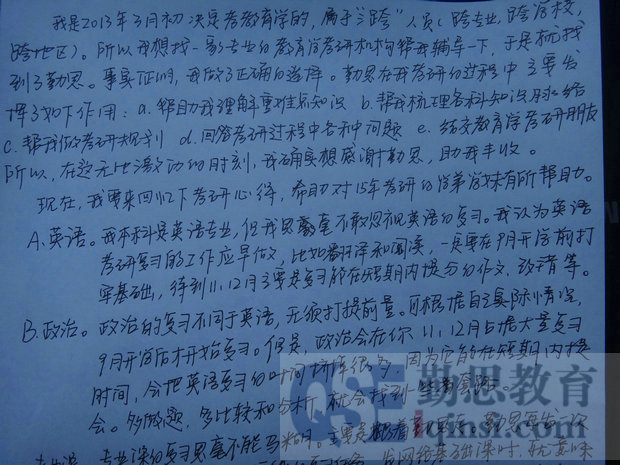 我是2013年3月初决定考教育学的，属于"三跨"人员（跨专业，跨学校，
跨地区）。所以我想找一家专业的教育学考研机构帮我辅导一下，于是就找
到了勤思。事实证明，我做了正确的选择。勤思在我考研的过程中主要发
挥了如下作用：a.帮助我理解重难点知识 b.帮我梳理各科知识脉络
c.帮我做考研规划 d.回答考研过程中各种问题 e.结交教育学考研朋友
所以，在这无比激动的时刻，我确实想感谢勤思，助我丰收。
现在，我要来回忆下考研心得，希助对15年考研的学弟学妹有所帮助。
A.英语。我本科是英语专业，但我思毫不敢忽视英语的复习。我认为英语
考研复习的工作应早做，比如翻译和阅读，一定要在9月开学前打
牢基础，待到11、12月主要是复习能在短期内提分的作文、政治等。
B.政治。政治的复习不同于英语，无须打提前量。可根据自己实际情况，
9月开学后才开始复习。但是，政治会在你11、12月占据大量复习
时间，会把英语复习的时间挤掉很多，因为它的在短期内提
会。多做题，多比较和分析，就会找到
专业课的复习思毫不能马虎。主要是
勤思教育
iqinsi.com
QSE